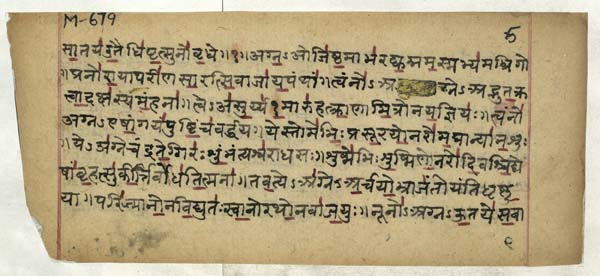 M-679
५
सातयऽउतैधिपृत्सुनोवृधे॥१॥अग्नऽओजिष्ठमाभरद्युम्नमस्मभ्यमध्रिगो
।प्रनोरायापरीणसारत्सिवाजायपंथां॥त्वंनोऽअग्नेऽअद्भुतक्र
त्वादक्षस्यमंहना॥त्वेऽअसुर्य१मारुहत्क्राणामित्रोनयज्ञियः॥त्वंनो
अग्नऽएषांगयंपुष्टिंचवर्द्धय॥येस्तोमेभिःप्रसूरयोनरोमघान्यानशुः
॥येऽअग्नेचंद्रतेगिरःशुंभंत्यश्वराधसः॥शुष्मेभिःशुष्मिणोनरोदिवश्चिद्ये
षांबृहत्सुकीर्त्तिर्बोधतित्मना॥तवत्येऽअग्नेऽअर्चयोभ्राजंतोयंतिधृष्णु
या॥परिज्मानोनविद्युतःस्वानोरथोनवाजयुः॥नूनोऽअग्नऽऊतयेसबा